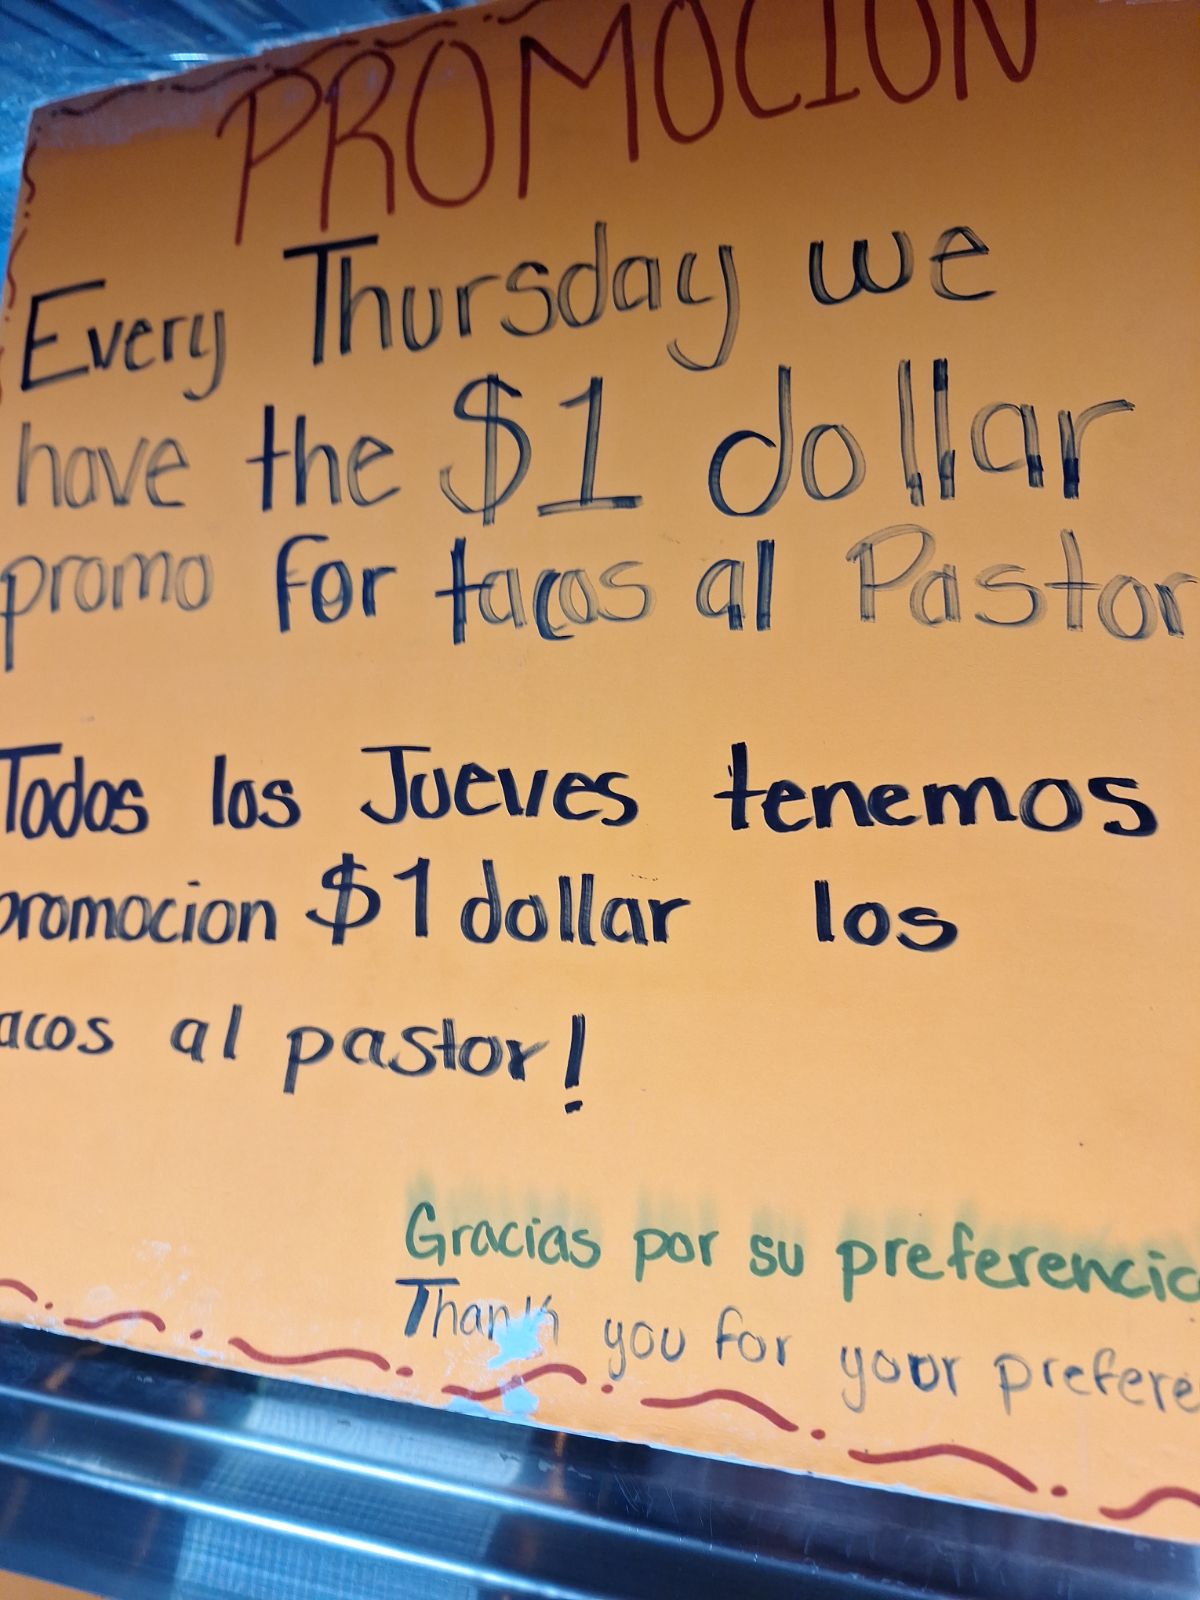 PROMOCION
Every Thursday we
have the $1 dollar
promo for tacos al Pastor
Todos los Jueves tenemos
promocion $1 dollar los
acos al pastor!
Gracias por su preferencia
Thank you for your prefere